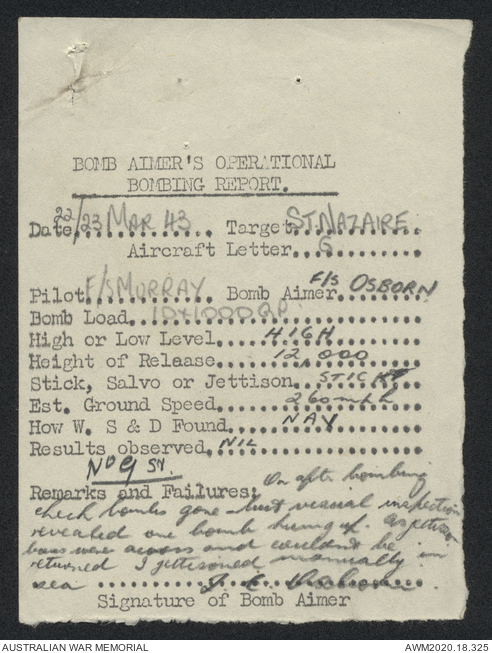 BOMB AIMER'S OPERATIONAL
BOMBING REPORT.
Date 22/23 MAR 43 Target ST. NAZAIRE
Aircraft Letter G
Pilot F/S MURRAY Bomb Aimer F/S OSBORN
Bomb Load 10 x 1000 GP.
High or Low Level HIGH
Height of Relaase 12,000
Stick, Salvo or Jettison STICK
Est. Ground Speed 260 mph
How W. S & D Found NAV
Results observed NIL
No 9 SN.
Remarks and Failures: On after bombing
check bombs gone but visual inspection
revealed one bomb hung up. As jettison
bars were across and couldn't be
returned I jettisoned manually in
sea
Signature of Bomb Aimer
AUSTRALIAN WAR MEMORIAL AWM2020.18.325